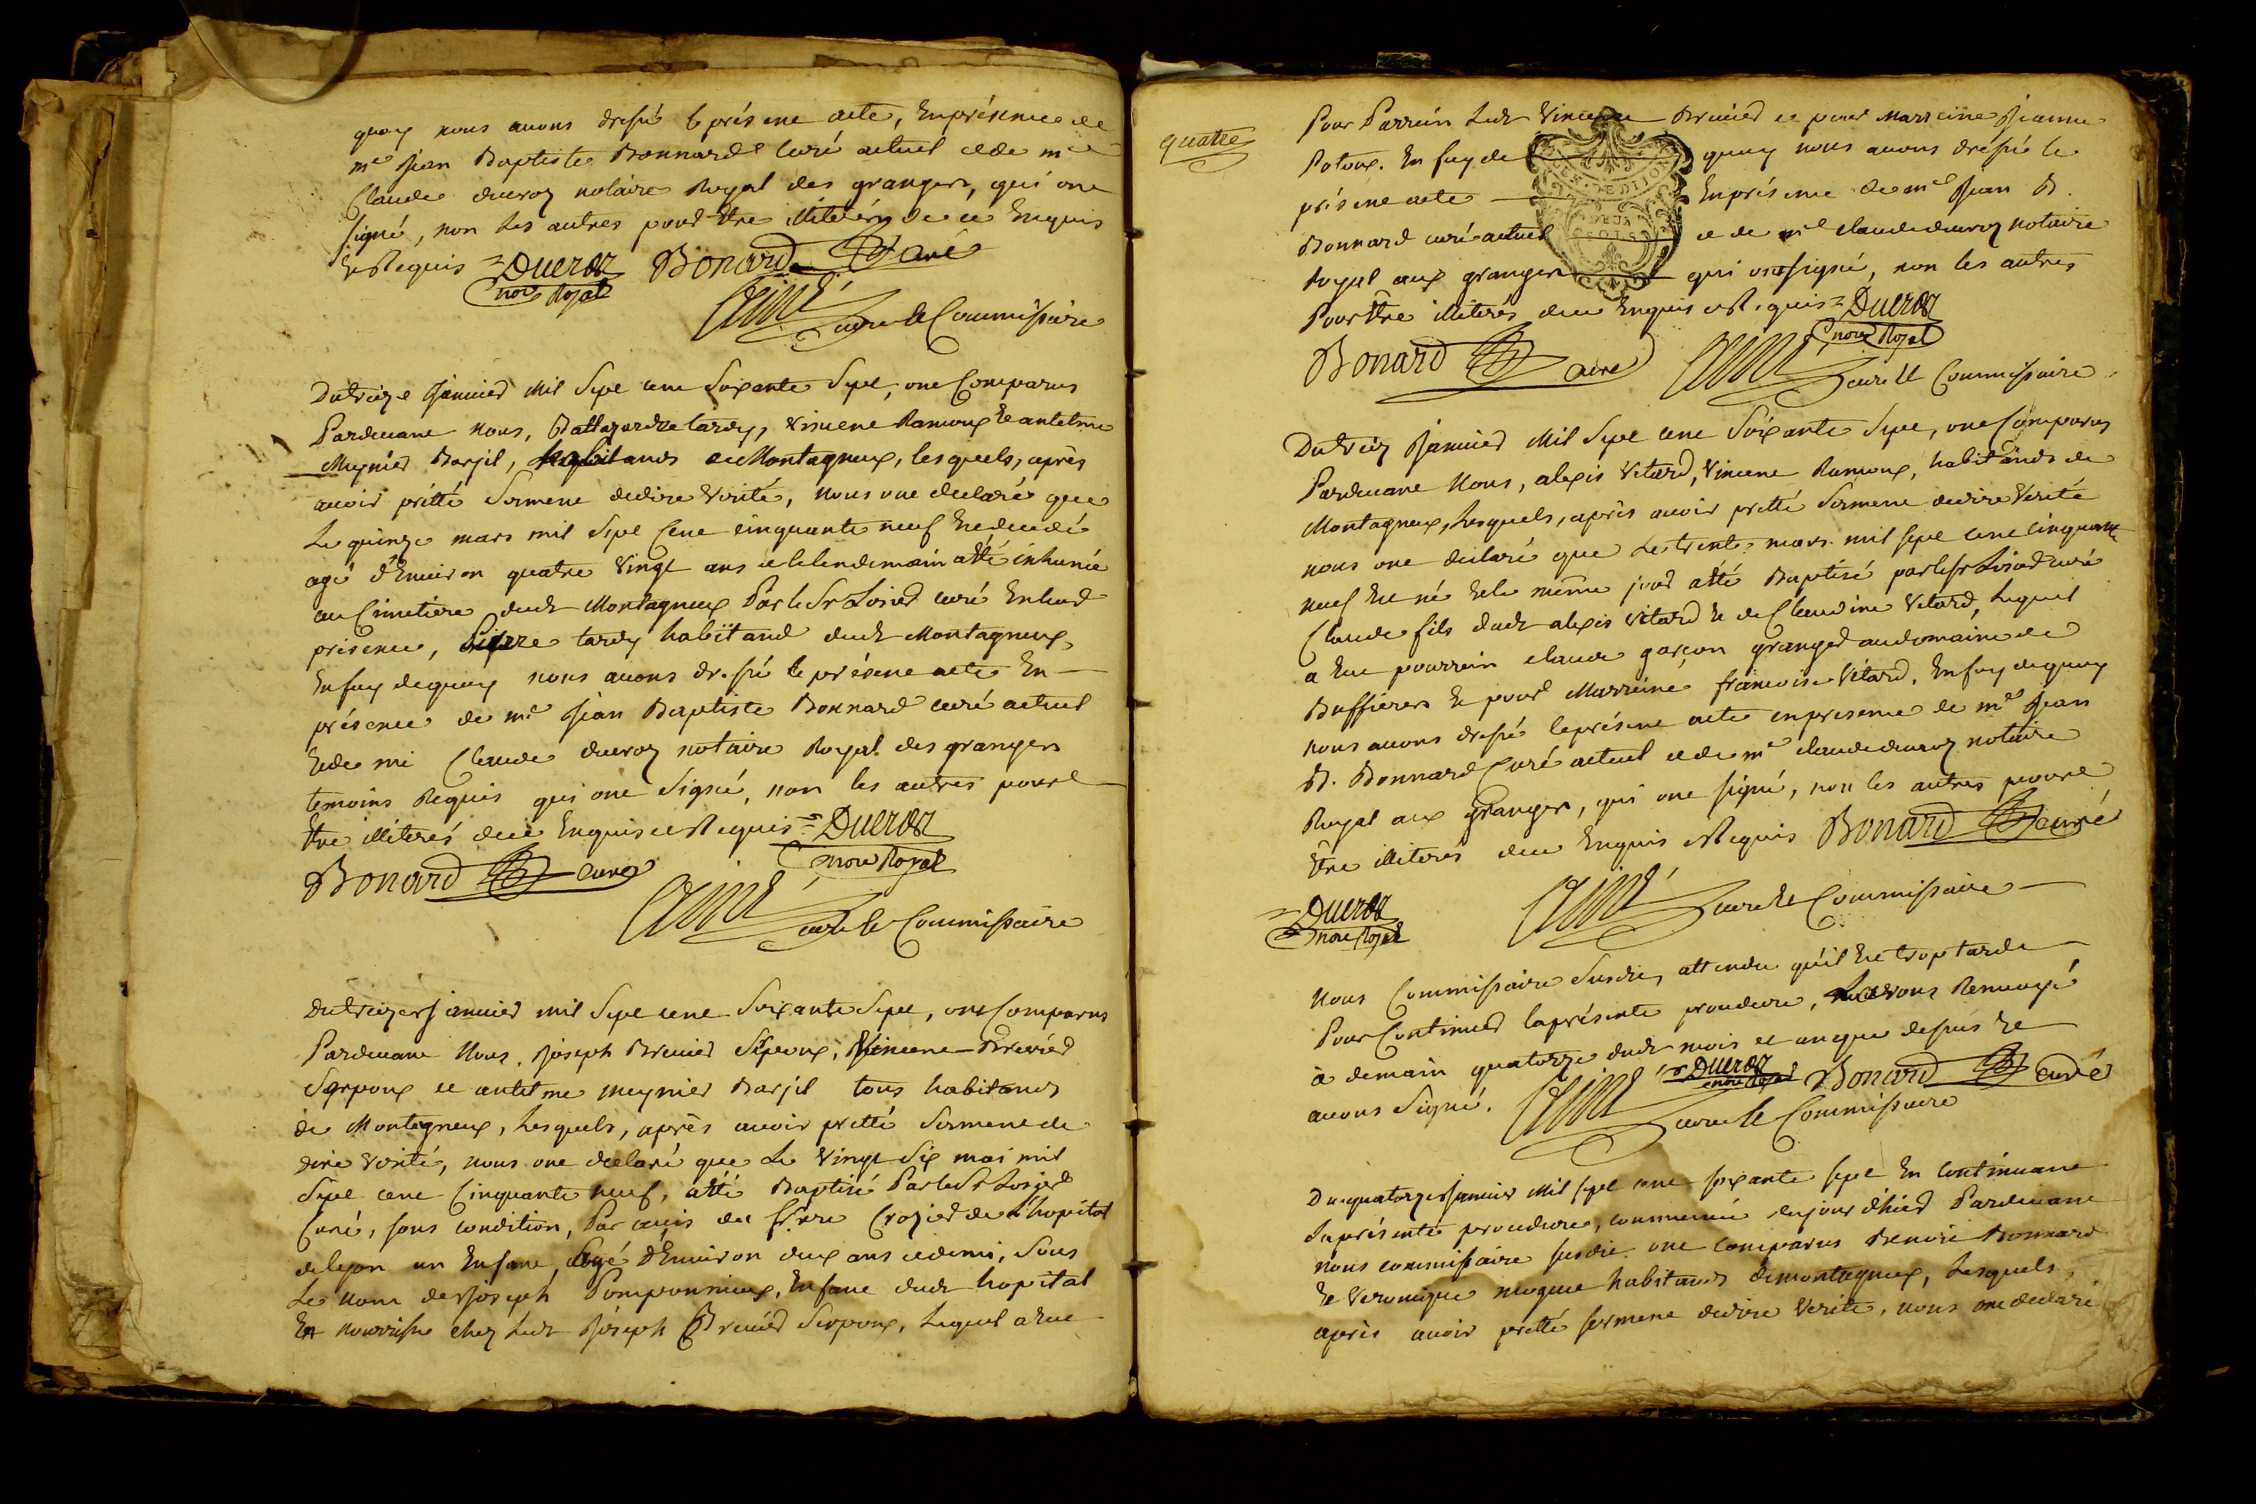 quoy nous avons dressé le présent acte, En présence de
me Jean Baptiste Bonnard Curé actuel et de me
Claude ducroz notaire Royal des granges, qui ont
signé, non les autres pour Etre illiterés de ce Enquis
Et Requis = Ducroz Bonard Curé
nore Royal
Aimé
curé Commissaire
Du treize Janvier Mil Sept cent Soixante Sept, ont Comparus
Pardevant Nous, Baltazard tardy, Vincent Ramoux Et antelme
Meynier Barjil, habitants de Montagneux, lesquels, après
avoir prétté Serment de dire Vérité, nous ont declaré que
Le quinze mars mil Sept Cent cinquante neuf Est decedé
agé d'Environ quatre vingt ans et le lendemain a Eté inhumé
au Cimetiere dudt Montagneux Par le Sr Loisier curé En leur
présence, Pierre tardy habitant dudt Montagneux,
En foy de quoy nous avons dressé le présent acte En
présence de me Jean Baptiste Bonnard curé actuel
Et de me Claude ducroz notaire Royal des granges
temoins Requis qui ont Signé, non les autres pour
Etre illiterés de ce Enquis et Requis = Ducroz
nore Royal
Bonard Curé
Aimé
curé Commissaire
Du treize Janvier mil Sept cent Soixante Sept, ont Comparus
Pardevant Nous, Joseph Brevier Serpoux, Vincent Brevier
Serpoux et antelme meynier Barjil tous habitants
de Montagneux, Lesquels, après avoir prétté Serment de
dire Vérité, nous ont declaré que Le vingt Six mai mil
Sept cent Cinquante neuf, a Eté Baptisé Par le Sr Loisier
Curé, sous condition, Par avis du frere Crozier de L'hopital
de lyon un Enfant, agé d'Environ deux ans et demi, Sous
Le nom de Joseph Pomponnieux, Enfant dudt hopital
En nourrisse chez Ledt Joseph Brevier Serpoux, Lequel a Eut
quatre
Pour Parrein Ledt Vincent Brevier et pour Marreine Jeanne
Potoux. En foy de quoy nous avons dressé le
présent acte En présence de me Jean B.
Bonnard curé actuel et de me claude ducroz notaire
Royal aux granges qui ont signé, non les autres
Pour Etre illiterés de ce Enquis et Requis = Ducroz
nore Royal
Bonard Curé
Aimé
curé Commissaire
Du treize Janvier Mil Sept cent Soixante Sept, ont Comparus
Pardevant Nous, alexis Vitard, Vincent Ramoux, habitants de
Montagneux, Lesquels, après avoir prétté Serment de dire Verité
nous ont declaré que Le trente mars mil Sept cent cinquante
neuf Est né Et le même jour a Eté Baptisé par le Sr Loisier curé
Claude fils dudt alexis Vitard Et de Claudine Vitard, Lequel
a Eut pour parrein claude garçon granger au domaine de
Buffieres Et pour Marreine francoise Vitard. En foy de quoy
nous avons dressé le présent acte en presence de me Jean
B. Bonnard Curé actuel et de me claude ducroz notaire
Royal aux granges, qui ont signé, non les autres pour
Etre illiterés de ce Enquis et Requis Bonard curé
Ducroz
nore Royal
Aimé
curé Commissaire
Nous Commissaire Susdit, attendu qu'il Est trop tard
Pour Continuer la présente procedure, L'avons Renvoyé
à demain quatorze dudt mois et an que dessus Et
avons Signé. Aimé Ducroz nore Royal Bonard Curé
curé Commissaire
Du quatorze Janvier Mil Sept cent soixante sept En Continuant
La présente procedure, commencée du jour d'hier Pardevant
nous commissaire susdit ont comparus Benoit Bonnard
Et Veronique habitants de montagneux, Lesquels,
après avoir prétté serment de dire Verité, nous ont declaré